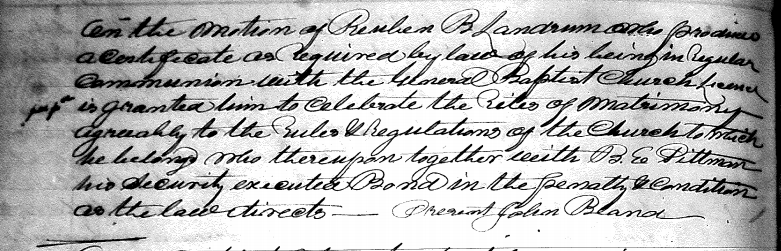 On the Motion of Reuben B Landrum who produces
a certificate as required by law of his being in regular
Communion with the General Baptist Church Licence
is granted him to celebrate the Rites of Matrimony
agreeably to the Rules & Regulations of the Church to which
he belongs who thereupon together with B E Pittman
his security executed Bond in the penalty & Condition
as the law directs — Present John Bland